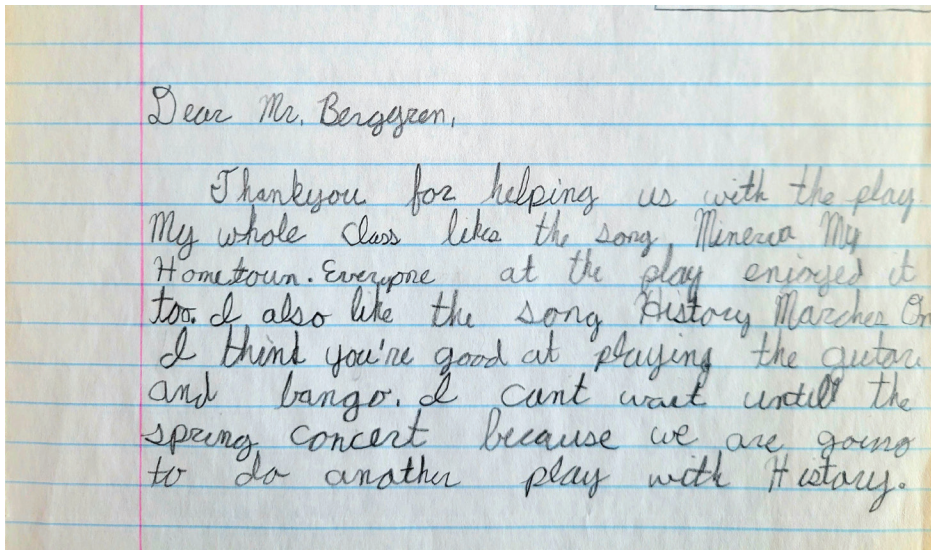 Dear Mr. Berggren,
Thankyou for helping us with the play
My whole class likes the song, Minerva My
Hometown. Everyone at the play enjoyed it
too. I also like the song History Marches On
I think you're good at playing the gutar
and bango. I cant wait untill the
spring concert because we are going
to do another play with History.